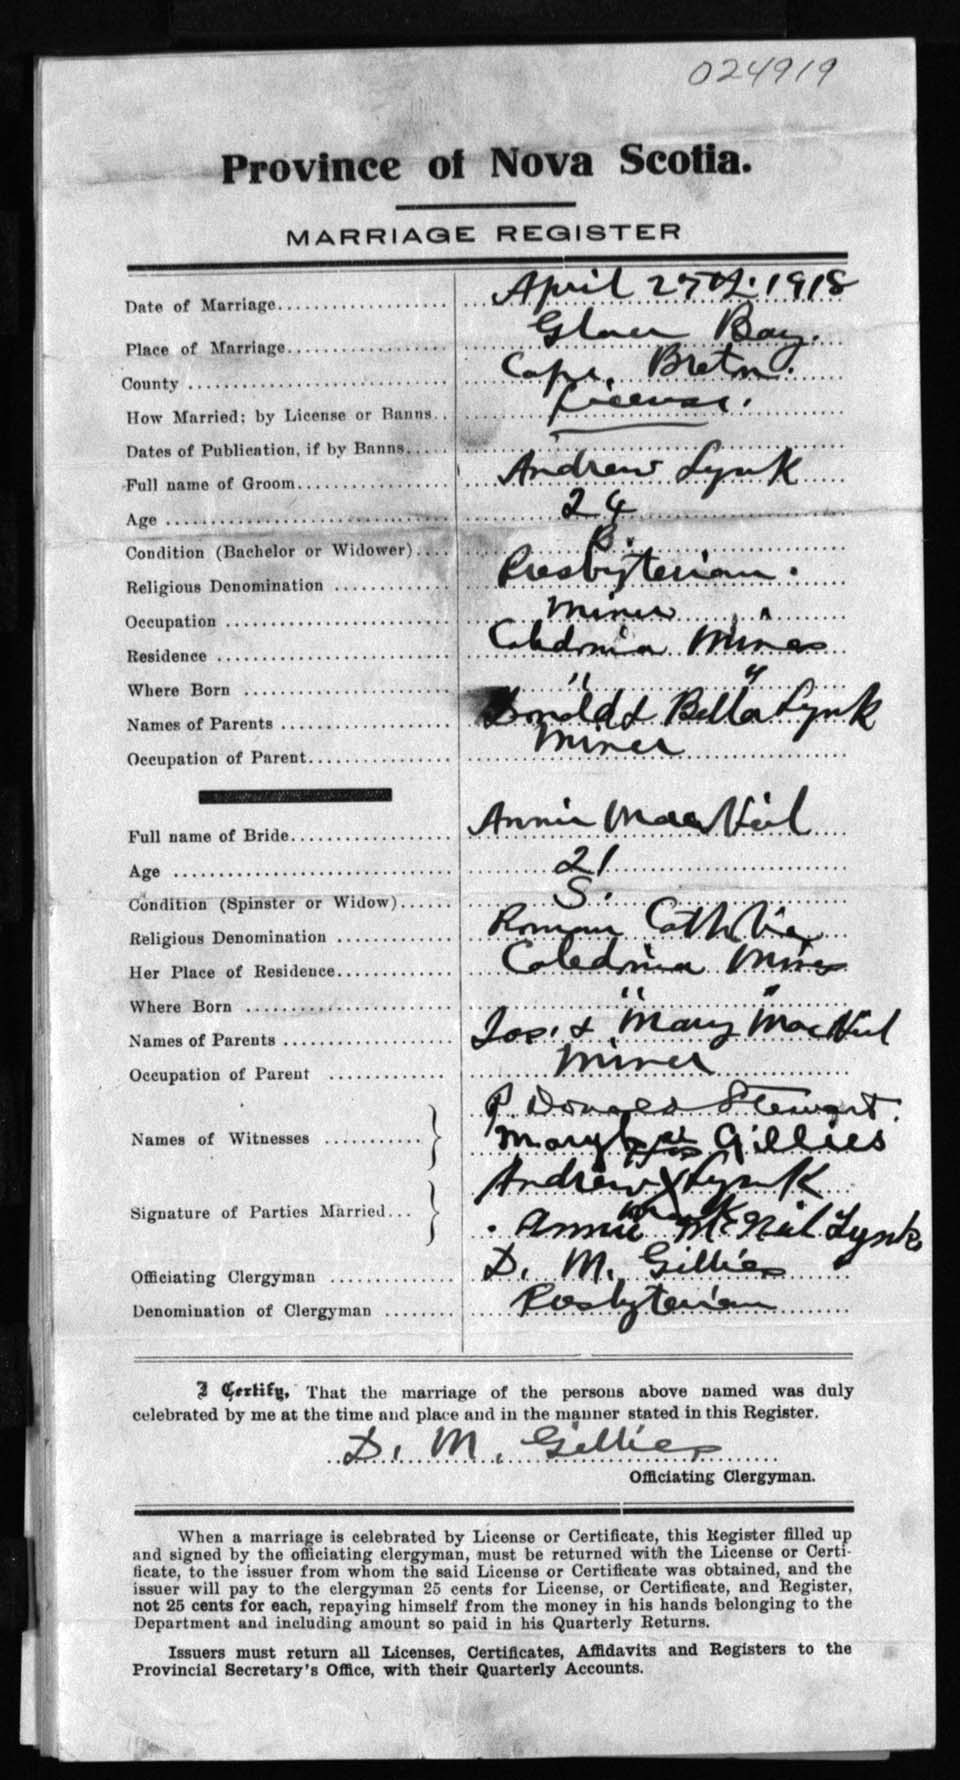 024919
Province of Nova Scotia.
MARRIAGE REGISTER
Date of Marriage April 27th. 1918
Place of Marriage Glace Bay.
County Cape Breton.
How Married; by License or Banns License.
Dates of Publication, if by Banns
Full name of Groom Andrew Lynk
Age 24
Condition (Bachelor or Widower) B.
Religious Denomination Presbyterian.
Occupation Miner
Residence Caledonia Mines
Where Born " "
Names of Parents Donald & Bella Lynk
Occupation of Parent Miner
Full name of Bride Annie MacNeil
Age 21
Condition (Spinster or Widow) S.
Religious Denomination Roman Catholic
Her Place of Residence Caledonia Mines
Where Born " "
Names of Parents Jos. & Mary MacNeil
Occupation of Parent Miner
Names of Witnesses P Donald Stewart.
Mary Gillies
Signature of Parties Married Andrew X Lynk
his mark
Annie McNeil Lynk
Officiating Clergyman D. M. Gillies
Denomination of Clergyman Presbyterian
I Certify, That the marriage of the persons above named was duly
celebrated by me at the time and place and in the manner stated in this Register.
D. M. Gillies
Officiating Clergyman.
When a marriage is celebrated by License or Certificate, this Register filled up
and signed by the officiating clergyman, must be returned with the License or Certi-
ficate, to the issuer from whom the said License or Certificate was obtained, and the
issuer will pay to the clergyman 25 cents for License, or Certificate, and Register,
not 25 cents for each, repaying himself from the money in his hands belonging to the
Department and including amount so paid in his Quarterly Returns.
Issuers must return all Licenses, Certificates, Affidavits and Registers to the
Provincial Secretary's Office, with their Quarterly Accounts.